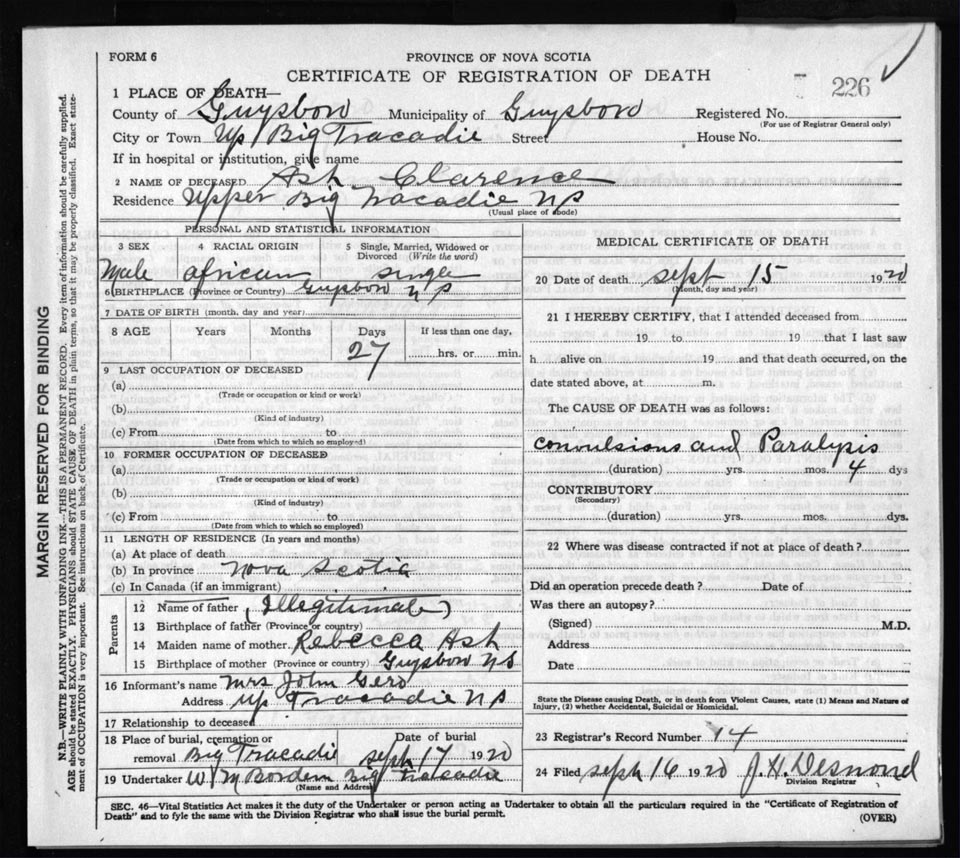 FORM 6
PROVINCE OF NOVA SCOTIA
CERTIFICATE OF REGISTRATION OF DEATH
226
1 PLACE OF DEATH—
County of Guysboro Municipality of Guysboro Registered No.
(For use of Registrar General only)
City or Town Up Big Tracadie Street House No.
If in hospital or institution, give name
2 NAME OF DECEASED Ash Clarence
Residence Upper Big Tracadie NS
(Usual place of abode)
PERSONAL AND STATISTICAL INFORMATION
3 SEX 4 RACIAL ORIGIN 5 Single, Married, Widowed or Divorced (Write the word)
Male african single
6 BIRTHPLACE (Province or Country) Guysboro NS
7 DATE OF BIRTH (month, day and year)
8 AGE Years Months Days If less than one day,
27 hrs. or min.
9 LAST OCCUPATION OF DECEASED
(a)
(Trade or occupation or kind or work)
(b)
(Kind of industry)
(c) From to
(Date from which to which so employed)
10 FORMER OCCUPATION OF DECEASED
(a)
(Trade or occupation or kind of work)
(b)
(Kind of industry)
(c) From to
(Date from which to which so employed)
11 LENGTH OF RESIDENCE (In years and months)
(a) At place of death
(b) In province Nova Scotia
(c) In Canada (if an immigrant)
Parents
12 Name of father (Illegitimate)
13 Birthplace of father (Province or country)
14 Maiden name of mother Rebecca Ash
15 Birthplace of mother (Province or country) Guysboro NS
16 Informant's name Mrs John Gero
Address Up Tracadie NS
17 Relationship to deceased
18 Place of burial, cremation or removal Date of burial
Big Tracadie sept 17 1920
19 Undertaker W M Borden Big Tracadie
(Name and Address)
MEDICAL CERTIFICATE OF DEATH
20 Date of death sept 15 1920
(Month, day and year)
21 I HEREBY CERTIFY, that I attended deceased from
19 to 19 that I last saw
h alive on 19 and that death occurred, on the
date stated above, at m.
The CAUSE OF DEATH was as follows:
convulsions and Paralysis
(duration) yrs. mos. 4 dys
CONTRIBUTORY
(Secondary)
(duration) yrs. mos. dys.
22 Where was disease contracted if not at place of death?
Did an operation precede death? Date of
Was there an autopsy?
(Signed) M.D.
Address
Date
State the Disease causing Death, or in death from Violent Causes, state (1) Means and Nature of
Injury, (2) whether Accidental, Suicidal or Homicidal.
23 Registrar's Record Number 14
24 Filed sept 16 1920 J. H. Desmond
Division Registrar
SEC. 46—Vital Statistics Act makes it the duty of the Undertaker or person acting as Undertaker to obtain all the particulars required in the "Certificate of Registration of
Death" and to fyle the same with the Division Registrar who shall issue the burial permit.
(OVER)
MARGIN RESERVED FOR BINDING
N.B.—WRITE PLAINLY WITH UNFADING INK—THIS IS A PERMANENT RECORD. Every item of information should be carefully supplied.
AGE should be stated EXACTLY. PHYSICIANS should STATE CAUSE OF DEATH in plain terms, so that it may be properly classified. Exact state-
ment of OCCUPATION is very important. See instructions on back of Certificate.